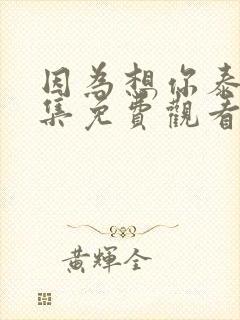 因為想你泰
集免費觀看
黃輝全